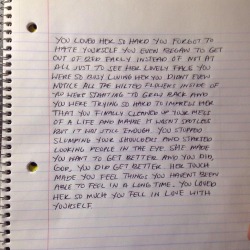 YOU LOVED HER SO HARD YOU FORGOT TO
HATE YOURSELF YOU EVEN BEGAN TO GET
OUT OF BED EARLY INSTEAD OF NOT AT
ALL JUST TO SEE HER LOVELY FACE YOU
WERE SO BUSY LOVING HER YOU DIDN'T EVEN
NOTICE ALL THE WILTED FLOWERS INSIDE OF
YOU WERE STARTING TO GROW BACK AND
YOU WERE TRYING SO HARD TO IMPRESS HER
THAT YOU FINALLY CLEANED UP YOUR MESS
OF A LIFE AND MAYBE IT WASN'T SPOTLESS
BUT IT WAS STILL ENOUGH. YOU STOPPED
SLUMPING YOUR SHOULDERS AND STARTED
LOOKING PEOPLE IN THE EYE SHE MADE
YOU WANT TO GET BETTER AND YOU DID,
GOD, YOU DID GET BETTER. HER TOUCH
MADE YOU FEEL THINGS YOU HAVEN'T BEEN
ABLE TO FEEL IN A LONG TIME. YOU LOVED
HER SO MUCH YOU FELL IN LOVE WITH
YOURSELF.